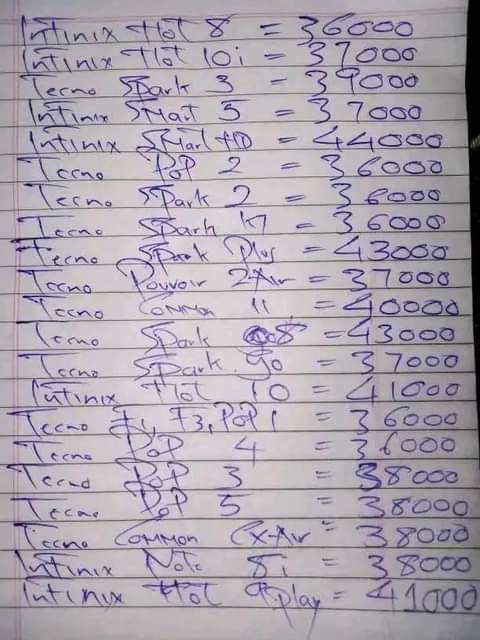 Infinix Hot 8 = 36000
Infinix Hot 10i = 37000
Tecno Spark 3 = 39000
Infinix Smart 5 = 37000
Infinix Smart HD = 44000
Tecno PoP 2 = 36000
Tecno Spark 2 = 36000
Tecno Spark K7 = 36000
Tecno Spark Plus = 43000
Tecno Pouvoir 2 Air = 37000
Tecno Common 11 = 40000
Tecno Spark 8 = 43000
Tecno Spark Go = 37000
Infinix Hot 10 = 41000
Tecno F1, F3, PoP 1 = 36000
Tecno PoP 4 = 36000
Tecno PoP 3 = 38000
Tecno PoP 5 = 38000
Tecno Common CX-Air = 38000
Infinix Note 8i = 38000
Infinix Hot 9play = 41000